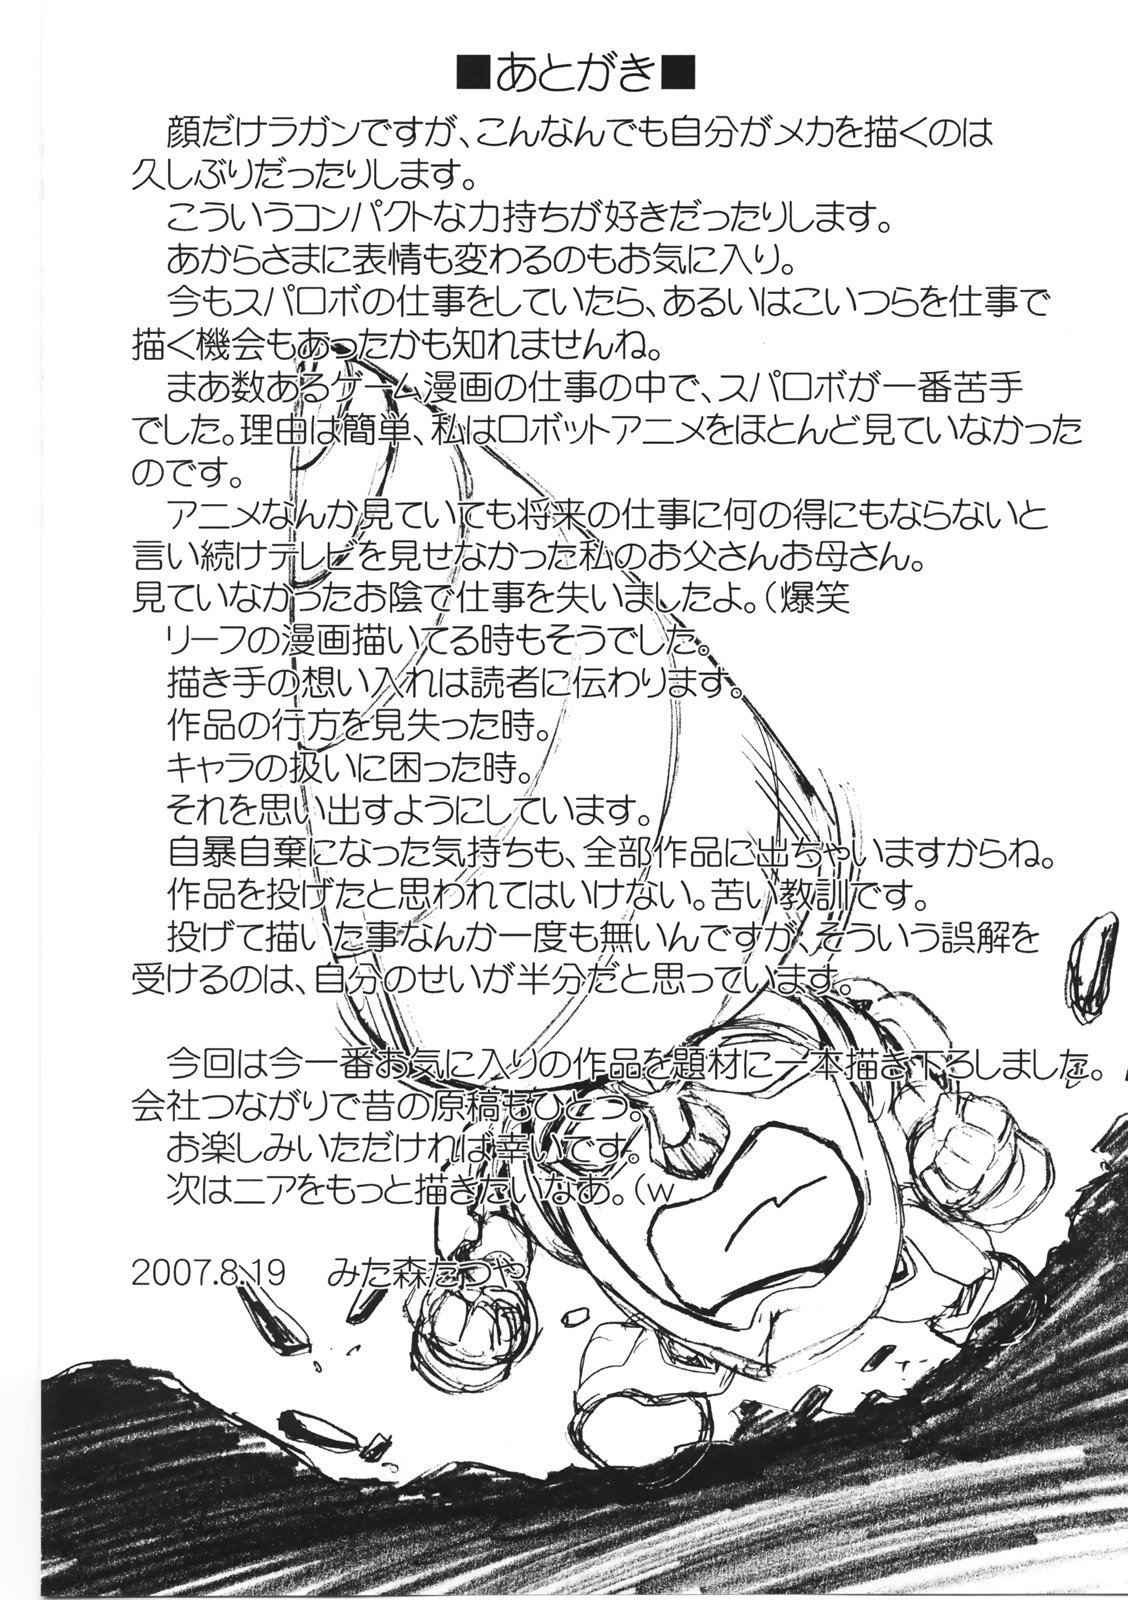 ■あとがき■
顔だけラガンですが、こんなんでも自分がメカを描くのは
久しぶりだったりします。
こういうコンパクトな力持ちが好きだったりします。
あからさまに表情も変わるのもお気に入り。
今もスパロボの仕事をしていたら、あるいはこいつらを仕事で
描く機会もあったかも知れませんね。
まあ数あるゲーム漫画の仕事の中で、スパロボが一番苦手
でした。理由は簡単、私はロボットアニメをほとんど見ていなかった
のです。
アニメなんか見ていても将来の仕事に何の得にもならないと
言い続けテレビを見せなかった私のお父さんお母さん。
見ていなかったお陰で仕事を失いましたよ。（爆笑
リーフの漫画描いてる時もそうでした。
描き手の想い入れは読者に伝わります。
作品の行方を見失った時。
キャラの扱いに困った時。
それを思い出すようにしています。
自暴自棄になった気持ちも、全部作品に出ちゃいますからね。
作品を投げたと思われてはいけない。苦い教訓です。
投げて描いた事なんか一度も無いんですが、そういう誤解を
受けるのは、自分のせいが半分だと思っています。
今回は今一番お気に入りの作品を題材に一本描き下ろしました。
会社つながりで昔の原稿もひとつ。
お楽しみいただければ幸いです。
次はニアをもっと描きたいなあ。（w
2007.8.19　みた森たつや